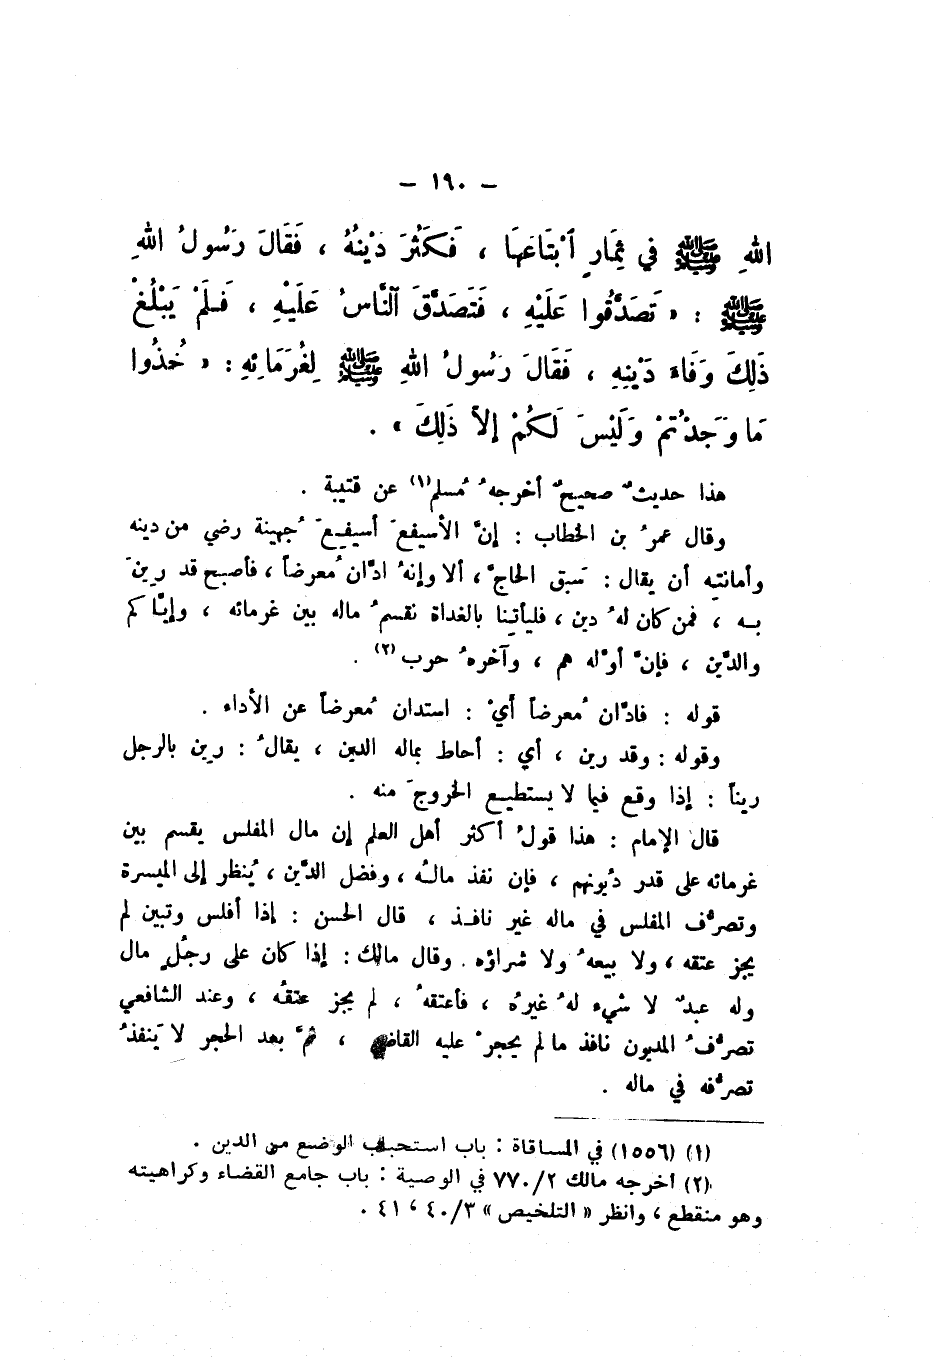 – ١٩٠ –
اللهِ ﷺ في ثِمَارٍ ٱبْتَاعَهَا ، فَكَثُرَ دَيْنُهُ ، فَقَالَ رَسُولُ اللهِ
ﷺ : « تَصَدَّقُوا عَلَيْهِ ، فَتَصَدَّقَ ٱلنَّاسُ عَلَيْهِ ، فَلَمْ يَبْلُغْ
ذَلِكَ وَفَاءَ دَيْنِهِ ، فَقَالَ رَسُولُ اللهِ ﷺ لِغُرَمَائِهِ : « خُذُوا
مَا وَجَدْتُمْ وَلَيْسَ لَكُمْ إلاَّ ذَلِكَ » .
هذا حديثٌ صحيحٌ أخرجهُ مُسلم(١) عن قتيبة .
وقال عمرُ بن الخطاب : إنَّ الأسيفعَ أسيفِعَ جُهينة رضي من دينه
وأمانتِه أن يقال : سَبق الحاجَّ ، ألا وإنهُ ادَّان مُعرضاً ، فأصبح قد رِينَ
بـه ، فمن كان لهُ دين ، فليأتِنا بالغداة نقسمُ ماله بين غرمائه ، وإيّاكم
والدَّين ، فإنَّ أوّله هم ، وآخرهُ حرب(٢) .
قوله : فادَّان مُعرضاً أيْ : استدان مُعرضاً عن الأداء .
وقوله : وقد رين ، أي : أحاط بماله الدين ، يقالُ : رين بالرجل
ريناً : إذا وقع فيما لا يستطيع الخروجَ منه .
قال الإمام : هذا قولُ أكثر أهل العلم إن مال المفلس يقسم بين
غرمائه على قدر دُيونهم ، فإن نفذ مالُه ، وفضل الدَّين ، يُنظر إلى الميسرة
وتصرُّف المفلس في ماله غير نافـذ ، قال الحسن : إذا أفلس وتبين لم
يجز عتقه ، ولا بيعهُ ولا شراؤه . وقال مالك : إذا كان على رجُلٍ مال
وله عبدٌ لا شيء لهُ غيرُه ، فأعتقهُ ، لم يجز عتقُه ، وعند الشافعي
تصرُّفُ المديون نافذ ما لم يحجرْ عليه القاضي ، ثمَّ بعد الحجر لا يَنفذُ
تصرُّفه في ماله .
(١) (١٥٥٦) في المساقاة : باب استحباب الوضع من الدين .
(٢) أخرجه مالك ٧٧٠/٢ في الوصية : باب جامع القضاء وكراهيته
وهو منقطع ، وانظر « التلخيص » ٤٠/٣ ، ٤١ .